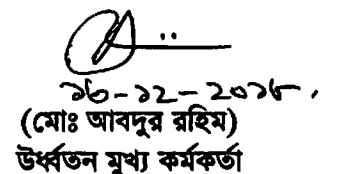 ১৬-১২-২০১৮.
(মোঃ আবদুর রহিম)
উর্ধ্বতন মুখ্য কর্মকর্তা